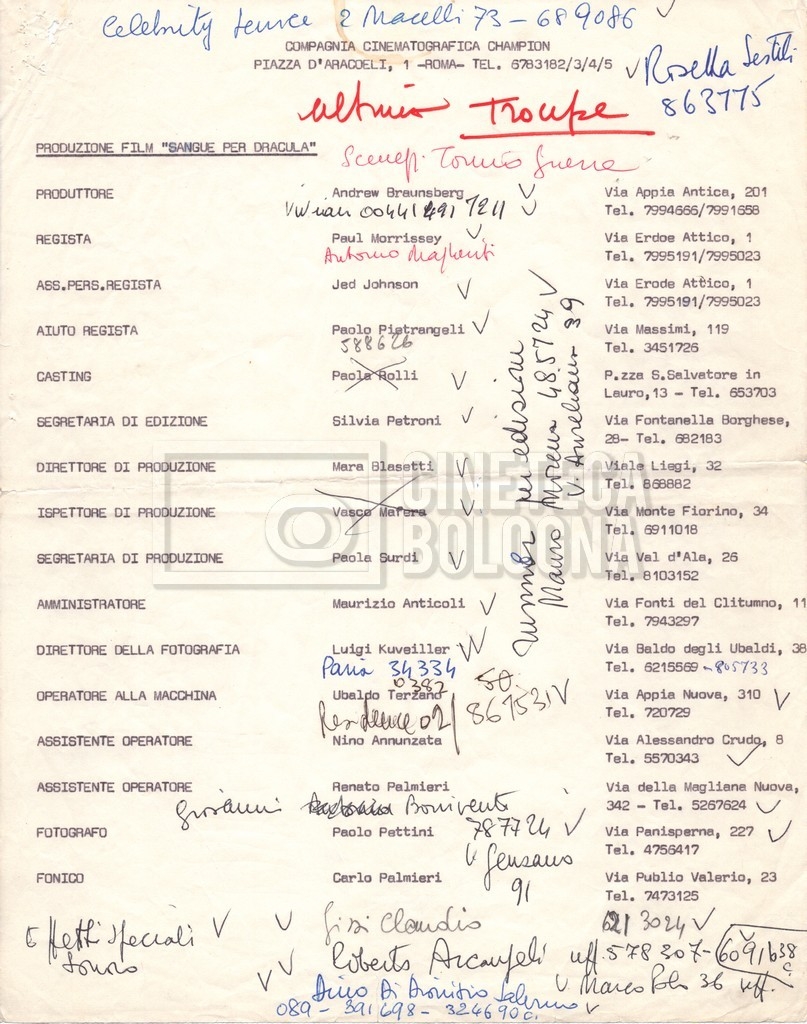 Celebrity Service 2 Macelli 73 - 689086
COMPAGNIA CINEMATOGRAFICA CHAMPION
PIAZZA D'ARACOELI, 1 -ROMA- TEL. 6783182/3/4/5
Rosella Sestili
863775
Troupe
PRODUZIONE FILM "SANGUE PER DRACULA"
Sceneg. Tonino Guerra
PRODUTTORE Andrew Braunsberg Via Appia Antica, 201
Vivian 00441 491 7211 Tel. 7994666/7991658
REGISTA Paul Morrissey Via Erdoe Attico, 1
Antonio Margheriti Tel. 7995191/7995023
ASS.PERS.REGISTA Jed Johnson Via Erode Attico, 1
Tel. 7995191/7995023
AIUTO REGISTA Paolo Pietrangeli Via Massimi, 119
588626 Tel. 3451726
CASTING Paola Rolli P.zza S.Salvatore in
Lauro,13 - Tel. 653703
SEGRETARIA DI EDIZIONE Silvia Petroni Via Fontanella Borghese,
28- Tel. 682183
DIRETTORE DI PRODUZIONE Mara Blasetti Viale Liegi, 32
Tel. 868882
ISPETTORE DI PRODUZIONE Vasco Mafera Via Monte Fiorino, 34
Tel. 6911018
SEGRETARIA DI PRODUZIONE Paola Surdi Via Val d'Ala, 26
Tel. 8103152
AMMINISTRATORE Maurizio Anticoli Via Fonti del Clitumno, 11
Tel. 7943297
per edizioni
Mauro 485724
V. Aureliana 39
CINETECA
BOLOGNA
DIRETTORE DELLA FOTOGRAFIA Luigi Kuveiller Via Baldo degli Ubaldi, 38
Pavia 34334 Tel. 6215569 - 805733
0382
OPERATORE ALLA MACCHINA Ubaldo Terzano Via Appia Nuova, 310
Residence 02/ 867531 Tel. 720729
ASSISTENTE OPERATORE Nino Annunzata Via Alessandro Crudo, 8
Tel. 5570343
ASSISTENTE OPERATORE Renato Palmieri Via della Magliana Nuova,
Giovanni Boniventi 342 - Tel. 5267624
FOTOGRAFO Paolo Pettini 787724 Via Panisperna, 227
V Gensano Tel. 4756417
FONICO Carlo Palmieri 91 Via Publio Valerio, 23
Tel. 7473125
Effetti speciali Gizi Claudio 3024
Sonoro Roberto Arcangeli uff. 578307 - 6091638 c.
V Marco Polo 36 uff.
Dino Di Dionisio Salerno
089 - 391698 - 324690 c.